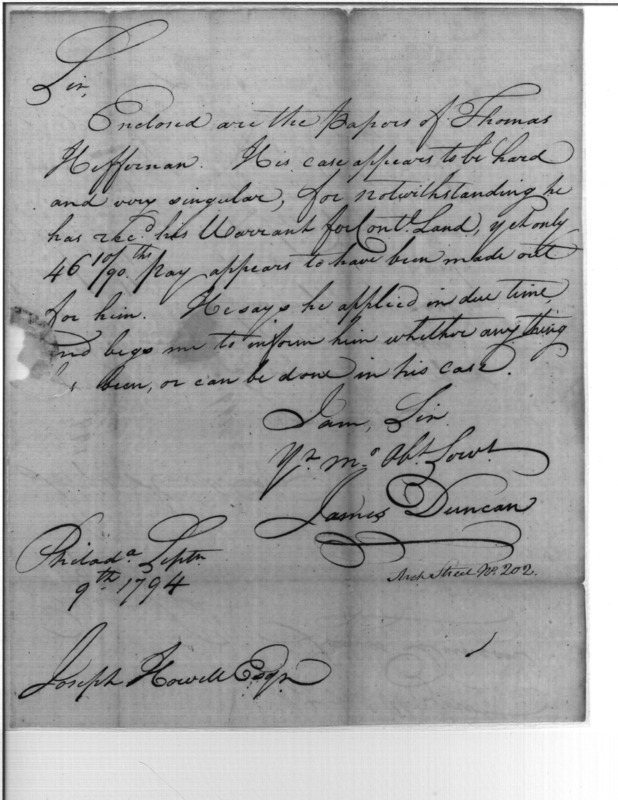 Sir,
Enclosed are the Papers of Thomas
Heffernan. His case appears to be hard
and very singular, for notwithstanding he
has rec.d his Warrant for Cont.l Land, yet only
46 10/90.ths of Pay appears to have been made out
for him. He says he applied in due time,
and begs me to inform him whether any thing
been, or can be done in his case.
I am, Sir
Yr. mo. Obt. Servt.
James Duncan
Arch Street No. 202.
Philad.a Septr.
9.th 1794
Joseph Howell Esqr.